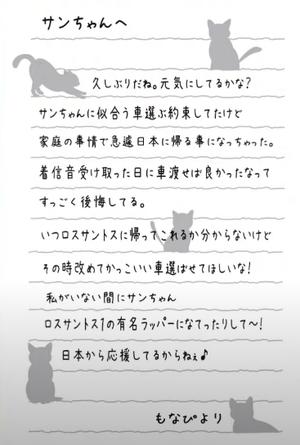 サンちゃんへ
久しぶりだね。元気にしてるかな?
サンちゃんに似合う車選ぶ約束してたけど
家庭の事情で急遽日本に帰る事になっちゃった。
着信音受け取った日に車渡せば良かったなって
すっごく後悔してる。
いつロスサントスに帰ってこれるか分からないけど
その時改めてかっこいい車選ばせてほしいな!
私がいない間にサンちゃん
ロスサントス1の有名ラッパーになってたりして〜!
日本から応援してるからねぇ♪
もなぴより